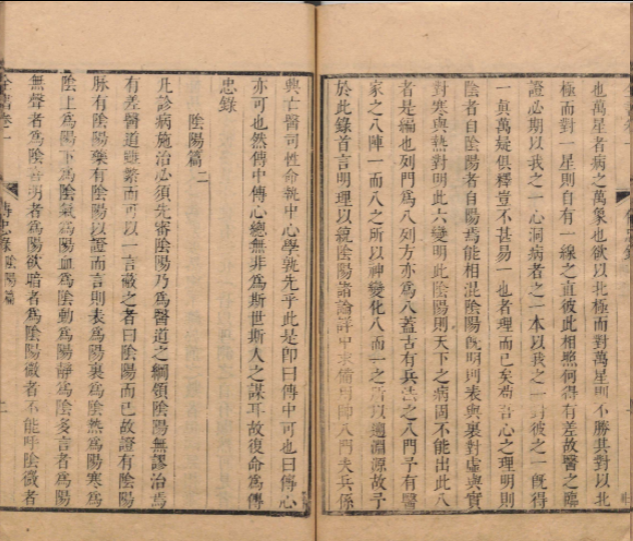 也萬星者病之萬象也欲以北極而對萬星則不勝其對以北
極而對一星則自有一線之直彼此相照何得有差故醫之臨
證必期以我之一心洞病者之一本以我之一對彼之一既得
一眞萬疑俱釋豈不甚易一也者理而已矣苟吾心之理明則
陰者自陰陽者自陽焉能相混陰陽旣明則表與裏對虛與實
對寒與熱對明此六變明此陰陽則天下之病固不能出此八
者是編也列門爲八列方亦爲八蓋古有兵法之八門予有醫
家之八陣一而八之所以神變化八而一之所以遡淵源故予
於此錄首言明理以統陰陽諸論詳中求備用帥八門夫兵係
興亡醫司性命執中心學孰先乎此是卽曰傳中可也曰傳心
亦可也然傳中傳心總無非爲斯世斯人之謀耳故復命爲傳
忠錄
陰陽篇二
凡診病施治必須先審陰陽乃爲醫道之綱領陰陽無謬治焉
有差醫道雖繁而可以一言蔽之者曰陰陽而已故證有陰陽
脉有陰陽藥有陰陽以證而言則表爲陽裏爲陰熱爲陽寒爲
陰上爲陽下爲陰氣爲陽血爲陰動爲陽靜爲陰多言者爲陽
無聲者爲陰喜明者爲陽欲暗者爲陰陽微者不能呼陰微者
全書卷一
傳忠錄 陰陽篇